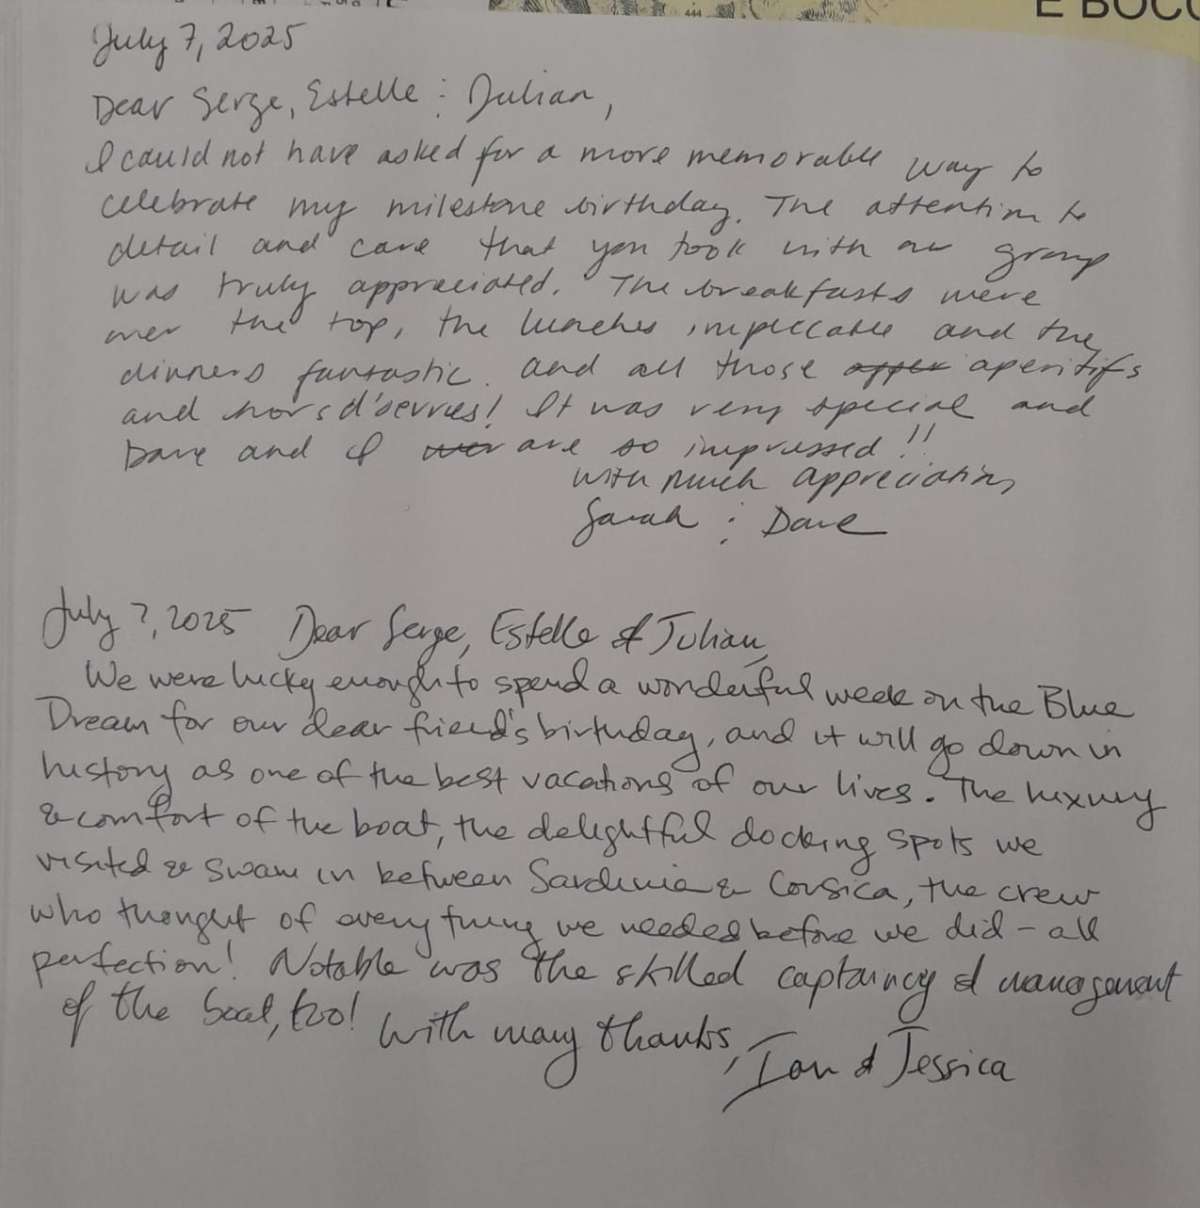 E BOCC
July 7, 2025
Dear Serge, Estelle : Julian,
I could not have asked for a more memorable way to
celebrate my milestone birthday. The attention to
detail and care that you took with our group
was truly appreciated. The breakfasts were
over the top, the lunches impeccable and the
dinners fantastic. and all those aperitifs
and hors d'oerves! It was very special and
Dave and I are so impressed!!
With much appreciation,
Sarah : Dave
July 7, 2025 Dear Serge, Estelle & Julian,
We were lucky enough to spend a wonderful week on the Blue
Dream for our dear friend's birthday, and it will go down in
history as one of the best vacations of our lives. The luxury
& comfort of the boat, the delightful docking spots we
visited & swam in between Sardinia & Corsica, the crew
who thought of everything we needed before we did - all
perfection! Notable was the skilled captaincy & management
of the boat, too! With many thanks,
Ian & Jessica